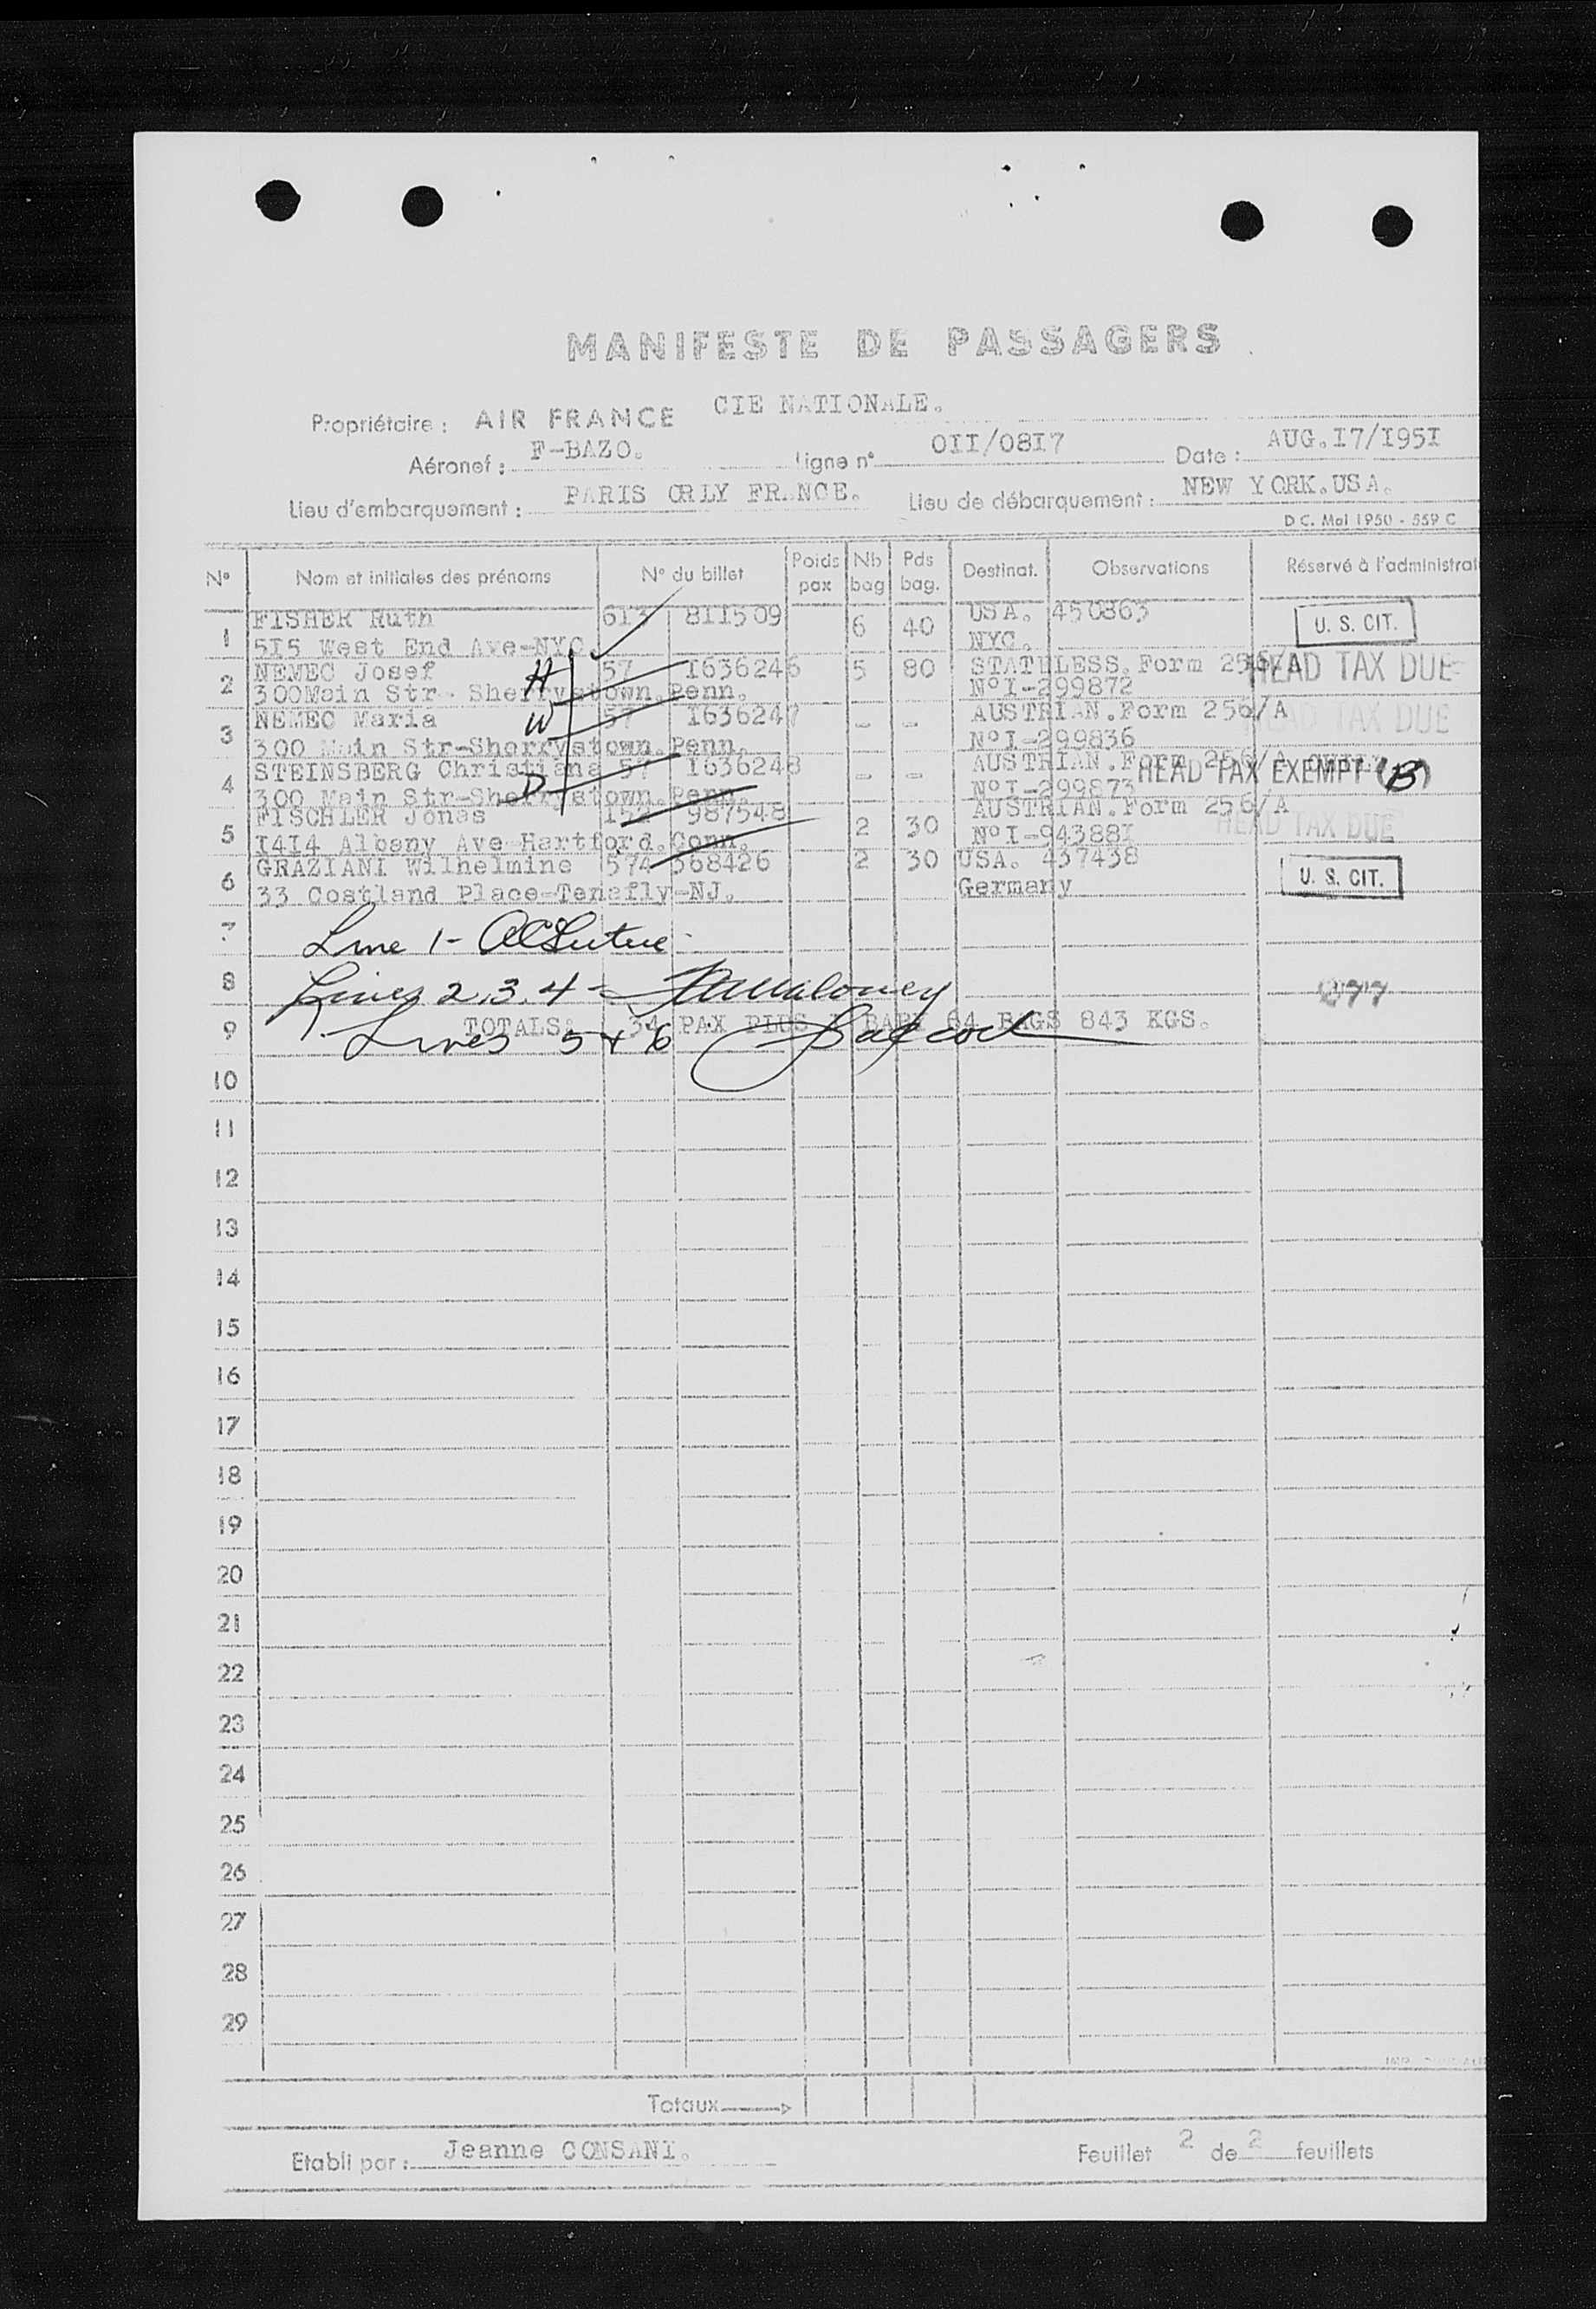 MANIFESTE DE PASSAGERS
Propriétaire : AIR FRANCE CIE NATIONALE.
Aéronef : F-BAZO. Ligne n° OII/08I7 Date : AUG.I7/I95I
Lieu d'embarquement : PARIS ORLY FRANCE. Lieu de débarquement : NEW YORK.USA.
D C. Mai 1950 - 559 C
N° Nom et initiales des prénoms N° du billet Poids pax Nb bag Pds bag. Destinat. Observations Réservé à l'administrat
1 FISHER Ruth 613 811509 6 40 USA. 450863 U. S. CIT.
5I5 West End Ave-NYC. NYC.
2 NEMEC Josef H 57 I636246 5 80 STATELESS.Form 256/A HEAD TAX DUE
300Main Str- Sherrystown.Penn. N°I-299872
3 NEMEC Maria W 57 I636247 - - AUSTRIAN.Form 256/A HEAD TAX DUE
300 Main Str-Sherrystown.Penn. N°I-299836
4 STEINSBERG Christiana 57 I636248 - - AUSTRIAN.Form 256/A HEAD TAX EXEMPT (B)
300 Main Str-Sherrystown.Penn. D N°I-299873
5 FISCHLER Jonas 152 987548 2 30 AUSTRIAN.Form 256/A HEAD TAX DUE
I4I4 Albany Ave Hartford.Conn. N°I-94388I
6 GRAZIANI Wilhelmine 574 368426 2 30 USA. 437438 U. S. CIT.
33 Costland Place-Tenafly-NJ. Germany
7 Line 1-
8 Lines 2.3.4- Maloney
9 TOTALS: 34 PAX PLUS I BABY 64 BAGS 843 KGS.
Lines 5 + 6
10
11
12
13
14
15
16
17
18
19
20
21
22
23
24
25
26
27
28
29
Totaux
Etabli par : Jeanne CONSANI. Feuillet 2 de 2 feuillets